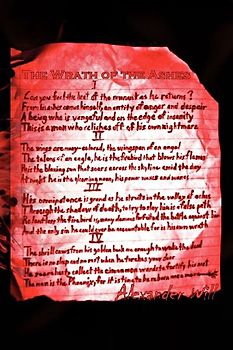 The Wrath of the Ashes
Can you feel the heat of the remnant as he returns?
From his ashes comes himself, an entity of anger and despair
A being who is vengeful and on the edge of insanity
This is a man who relishes off of his own nightmare
II
The wings are many-colored, the wingspan of an angel
The talons of an eagle, he is the firebird that blows his flames
this the blazing sun that soars across the skyline amid the
At night he is the gleaming moon, his power waxes and wanes
III
His omnipotence is grand as he struts in the valley of ashes
Through the shadow of doubt, to try to slay him is a false path
his fearless the firebird is among damned forfeited the battle against
And the only sin he could ever be accountable for is his own wrath
IV
The shrill caws from his golden beak are enough to wake the dead
There is no sleep and no rest when he reaches your door
He soared hastily to collect the cinnamon wards to fortify his nest
The man is the Phoenix, for it is time to be reborn once more
Alexander Will